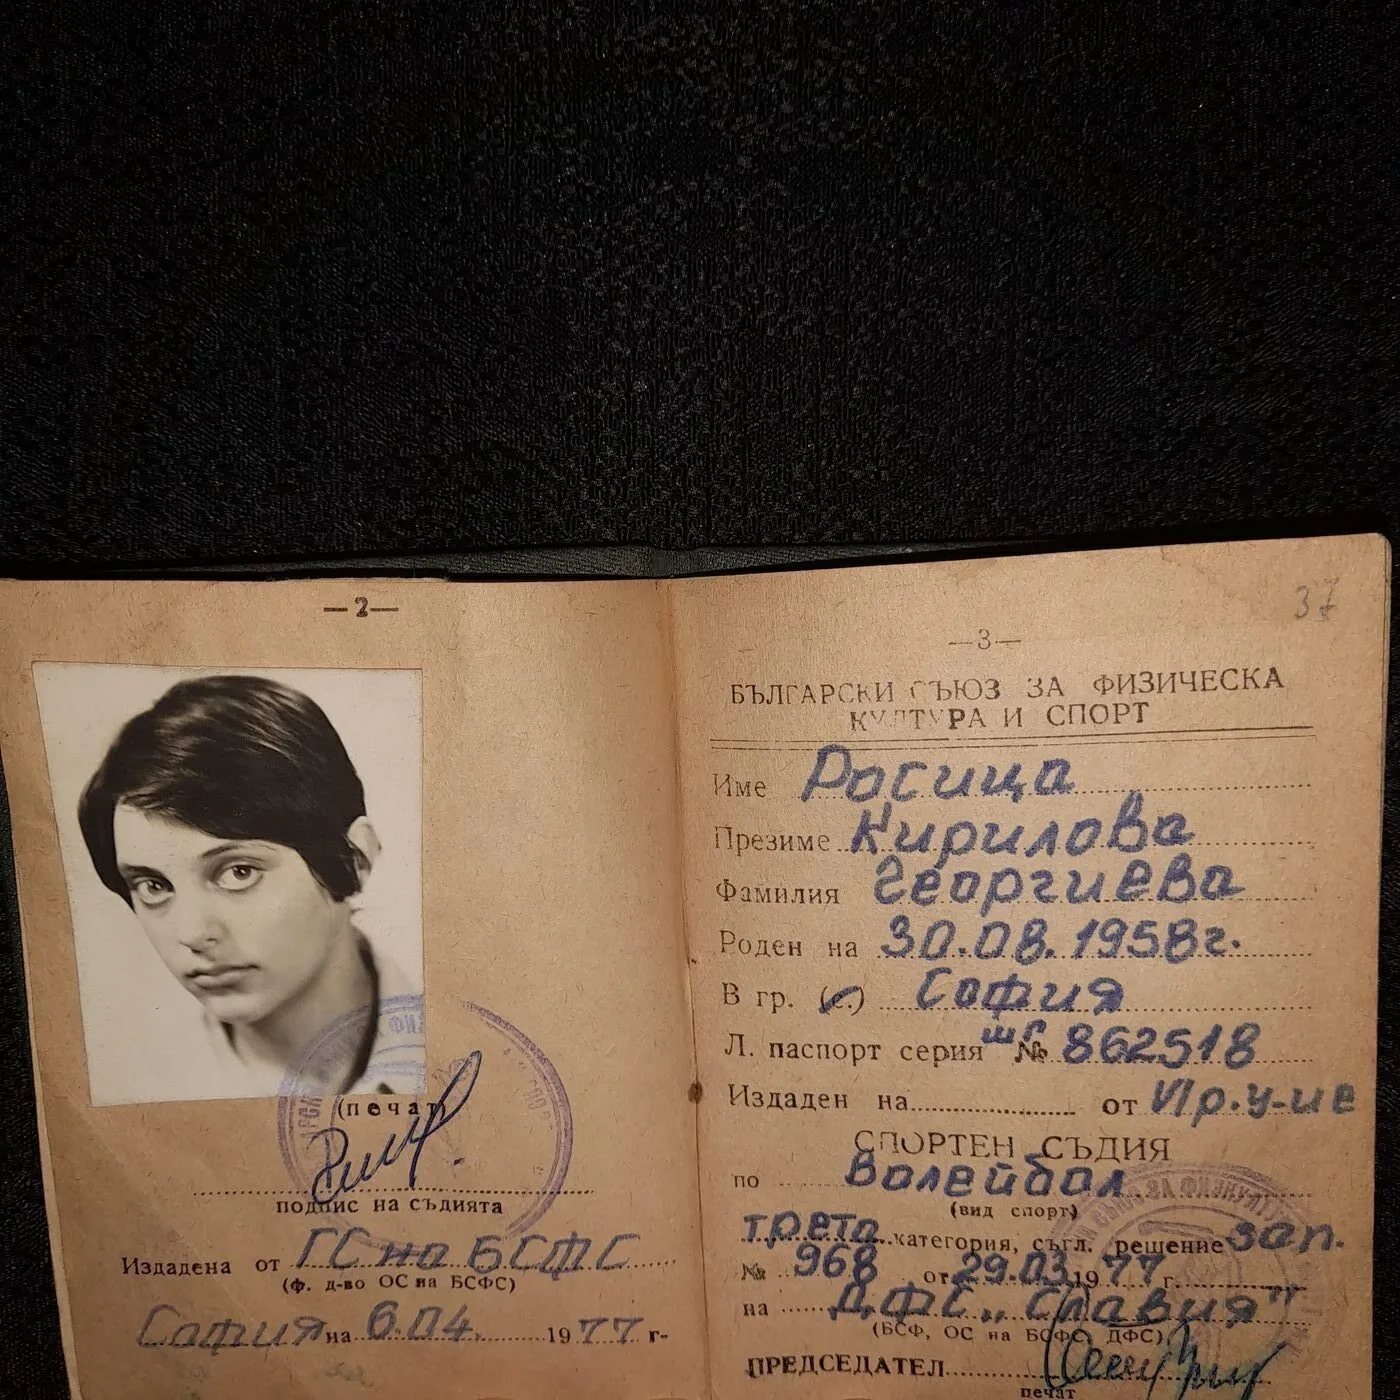 —2—
(печат)
подпис на съдията
Издадена от ГС на БСФС
(ф. д-во ОС на БСФС)
София на 6.04. 1977 г-
37
—3—
БЪЛГАРСКИ СЪЮЗ ЗА ФИЗИЧЕСКА
КУЛТУРА И СПОРТ
Име Росица
Презиме Кирилова
Фамилия Георгиева
Роден на 30.08.1958г.
В гр. (с.) София
Л. паспорт серия № 862518
Издаден на от VI р.у-ие
СПОРТЕН СЪДИЯ
по Волейбол
(вид спорт)
трета категория, съгл. решение зап.
№ 968 от 29.03.1977 г.
на ДФС „Славия"
(БСФ, ОС на БСФС, ДФС)
ПРЕДСЕДАТЕЛ
печат